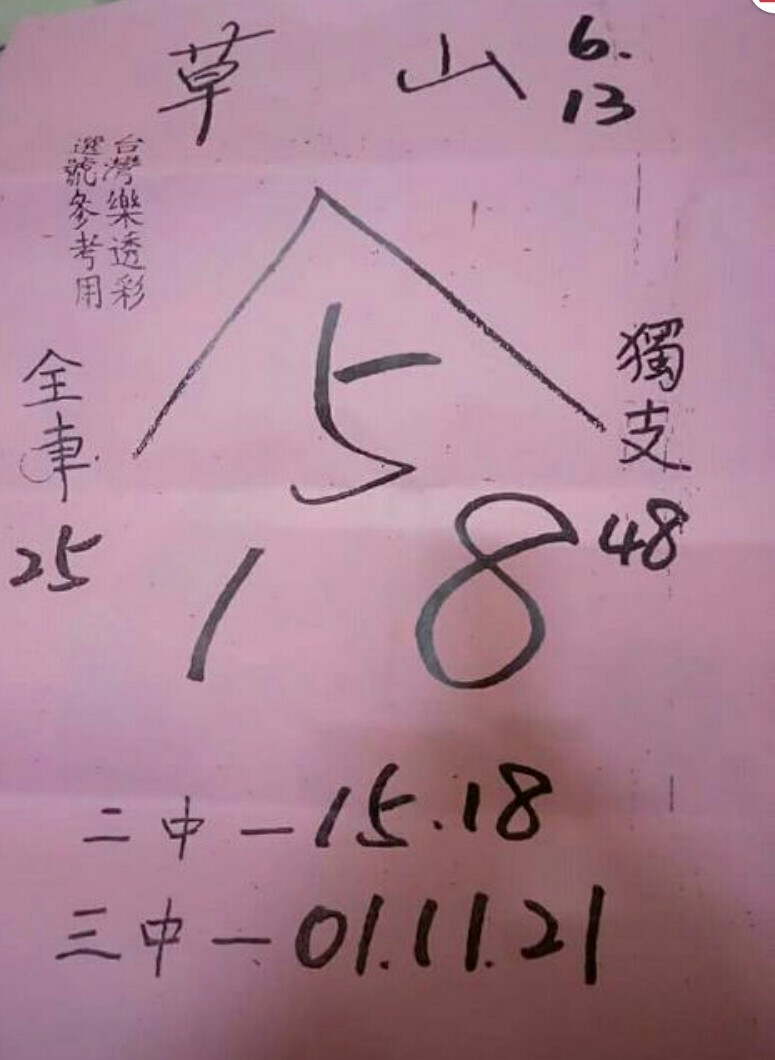 草山 6.
13
台灣樂透彩
選號參考用
全車
25
獨支
48
5
1 8
二中一15.18
三中一01.11.21